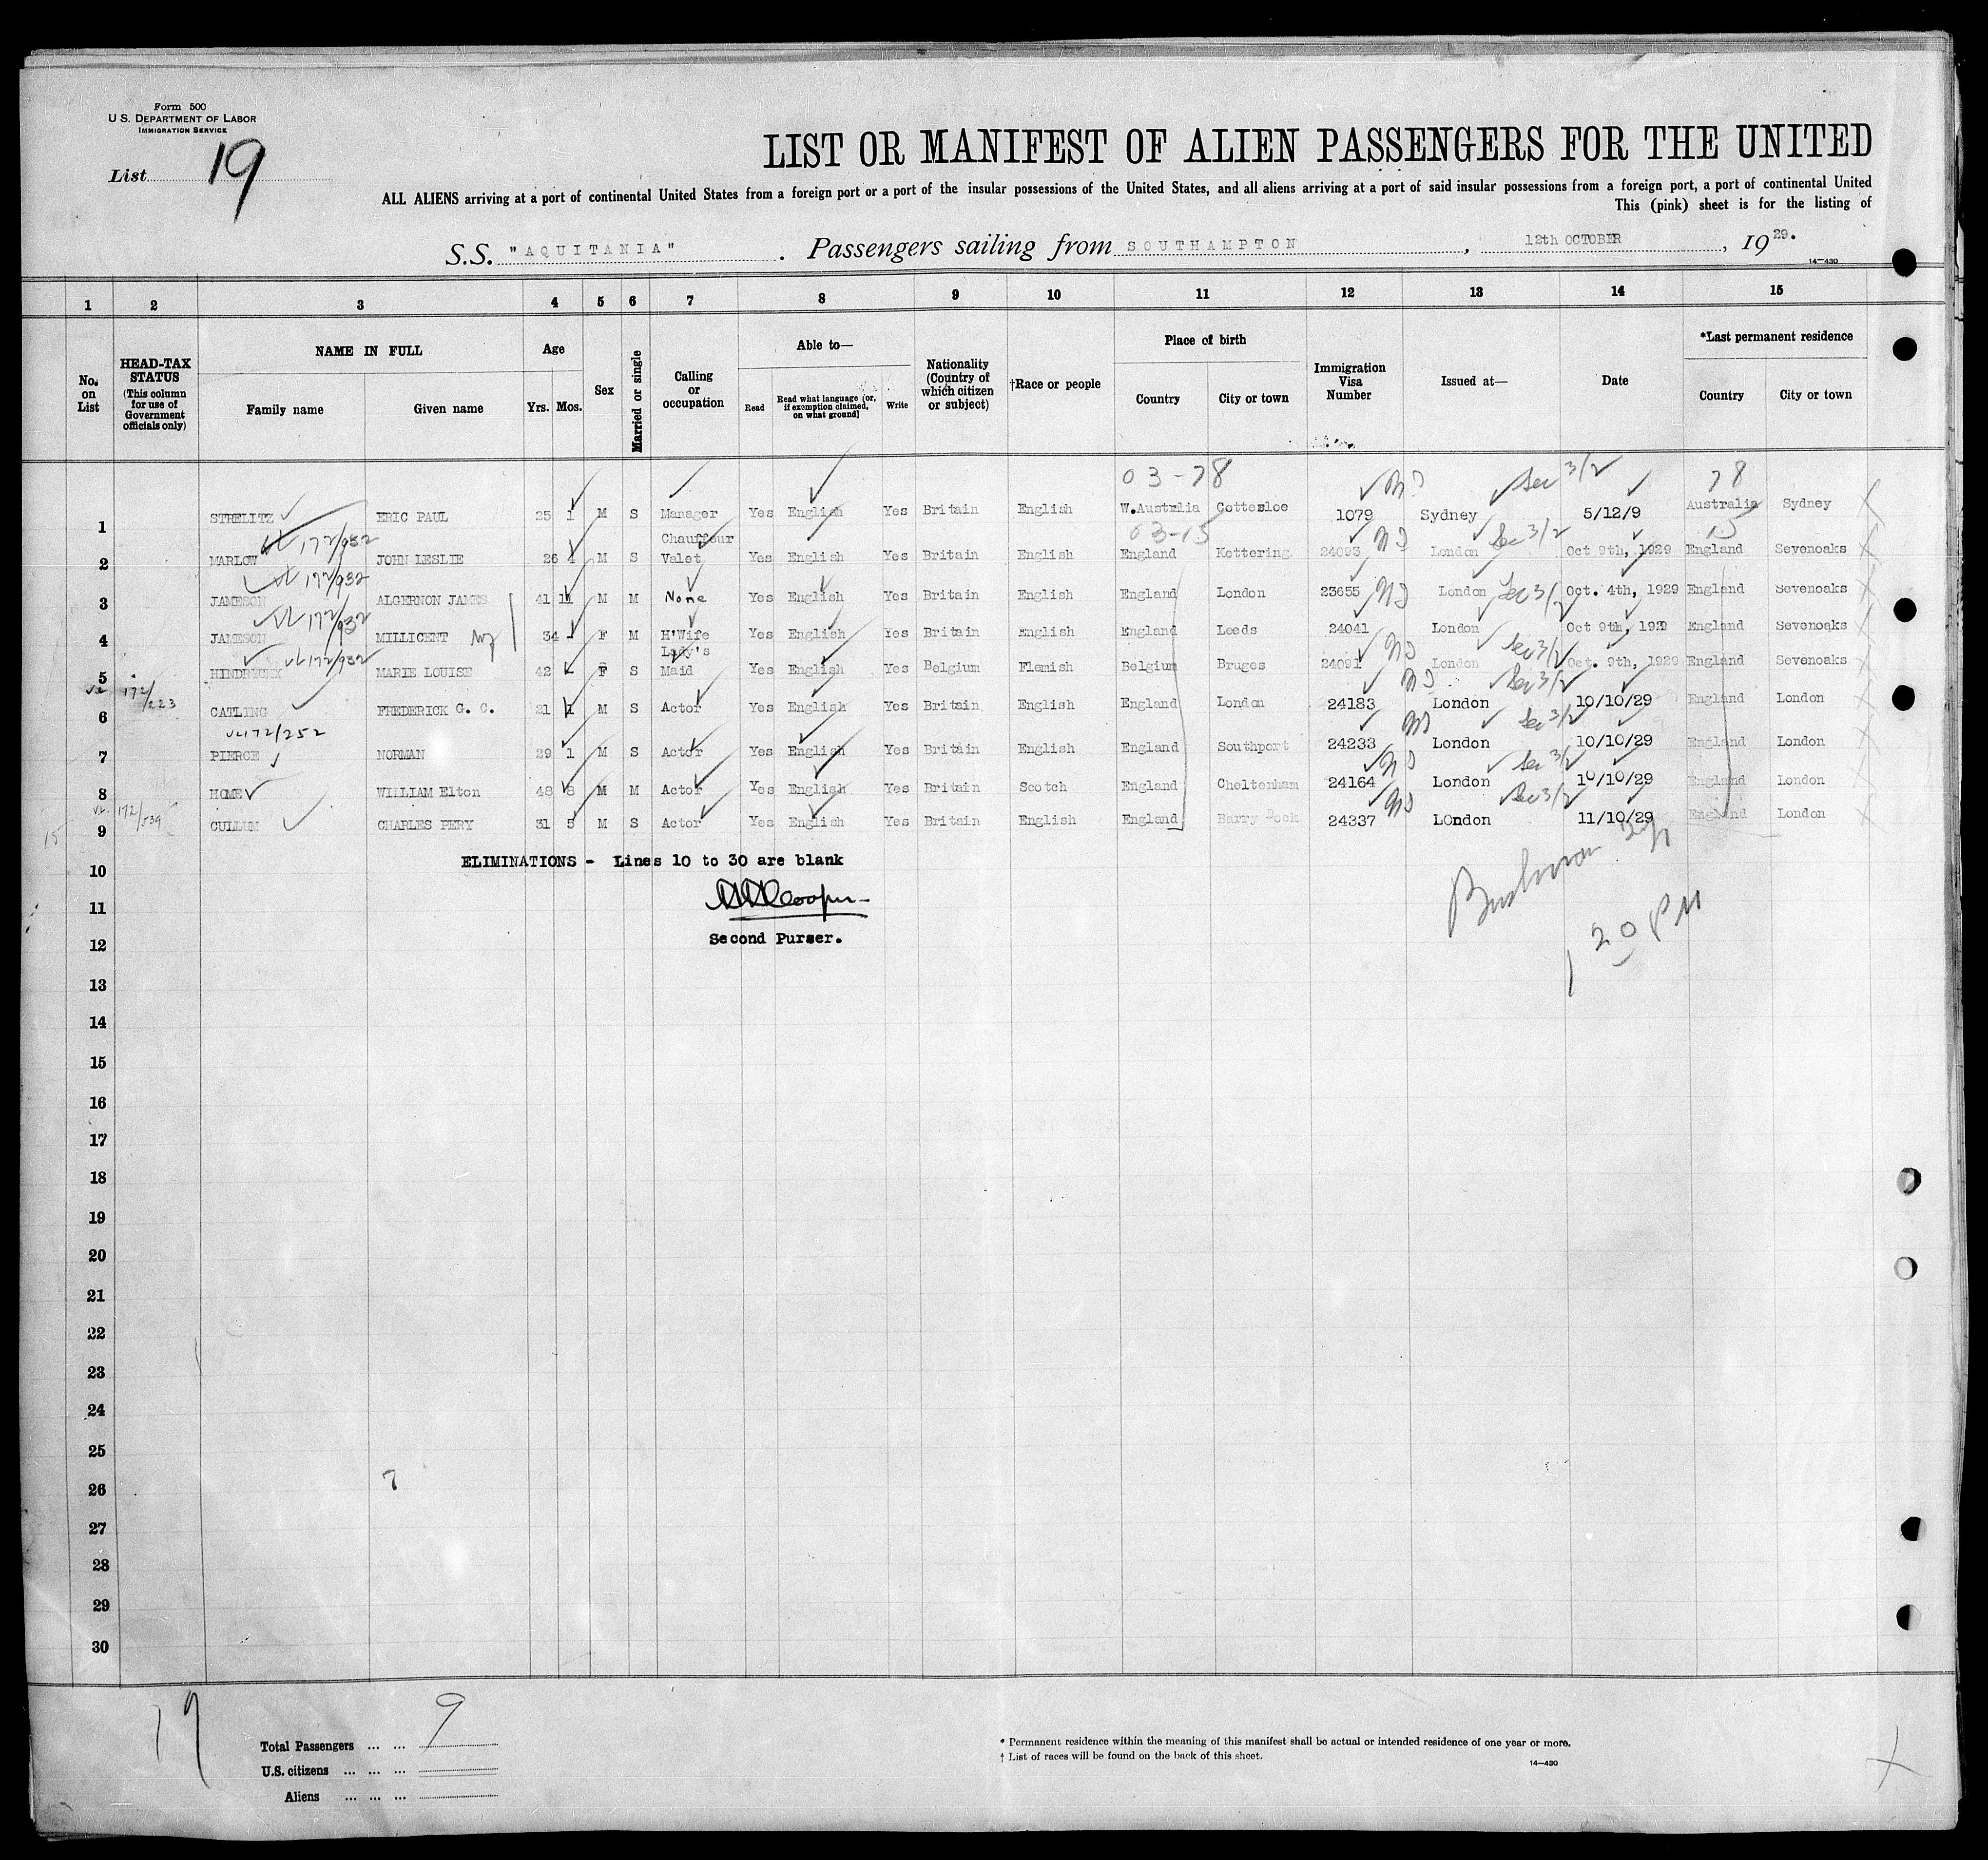 Form 500
U.S. DEPARTMENT OF LABOR
IMMIGRATION SERVICE
List 19
LIST OR MANIFEST OF ALIEN PASSENGERS FOR THE UNITED
ALL ALIENS arriving at a port of continental United States from a foreign port or a port of the insular possessions of the United States, and all aliens arriving at a port of said insular possessions from a foreign port, a port of continental United
This (pink) sheet is for the listing of
S.S. "AQUITANIA" . Passengers sailing from SOUTHAMPTON , 12th OCTOBER , 19 29.
14—430
1 2 3 4 5 6 7 8 9 10 11 12 13 14 15
No. on List
HEAD-TAX STATUS (This column for use of Government officials only)
NAME IN FULL
Family name Given name
Age
Yrs. Mos.
Sex
Married or single
Calling or occupation
Able to—
Read Read what language (or, if exemption claimed, on what ground) Write
Nationality (Country of which citizen or subject)
†Race or people
Place of birth
Country City or town
Immigration Visa Number
Issued at—
Date
*Last permanent residence
Country City or town
03-78 Sec 3/2 78
1 STRELITZ ERIC PAUL 25 1 M S Manager Yes English Yes Britain English W.Australia Cottesloe 1079 Sydney 5/12/9 Australia Sydney
172/932 03-15 Sec 3/2 15
2 MARLOW JOHN LESLIE 26 4 M S Chauffeur Valet Yes English Yes Britain English England Kettering 24093 London Oct 9th, 1929 England Sevenoaks
172/932
3 JAMESON ALGERNON JAMES 41 11 M M None Yes English Yes Britain English England London 23655 London Sec 3/2 Oct. 4th, 1929 England Sevenoaks
172/932
4 JAMESON MILLICENT 34 - F M H'Wife Yes English Yes Britain English England Leeds 24041 London Oct 9th, 1929 England Sevenoaks
172/932 Sec 3/2
5 HINDRECKX MARIE LOUISE 42 - F S Lady's Maid Yes English Yes Britain Belgium Flemish Belgium Bruges 24091 London Oct. 9th, 1929 England Sevenoaks
172/223 Sec 3/2
6 CATLING FREDERICK G. C. 21 1 M S Actor Yes English Yes Britain English England London 24183 London 10/10/29 England London
172/252 Sec 3/2
7 PIERCE NORMAN 29 1 M S Actor Yes English Yes Britain English England Southport 24233 London 10/10/29 England London
Sec 3/2
8 HOME WILLIAM Elton 48 8 M M Actor Yes English Yes Britain Scotch England Cheltenham 24164 London 10/10/29 England London
172/539 Sec 3/2
9 CULLUM CHARLES PERY 31 5 M S Actor Yes English Yes Britain English England Barry Dock 24337 LOndon 11/10/29 England London
15
10 ELIMINATIONS - Lines 10 to 30 are blank
11
12 Second Purser.
1 20 PM
13
14
15
16
17
18
19
20
21
22
23
24
25
26 7
27
28
29
30
19
Total Passengers ... ... 9
U.S. citizens ... ... ...
Aliens ... ... ...
* Permanent residence within the meaning of this manifest shall be actual or intended residence of one year or more.
† List of races will be found on the back of this sheet.
14—430